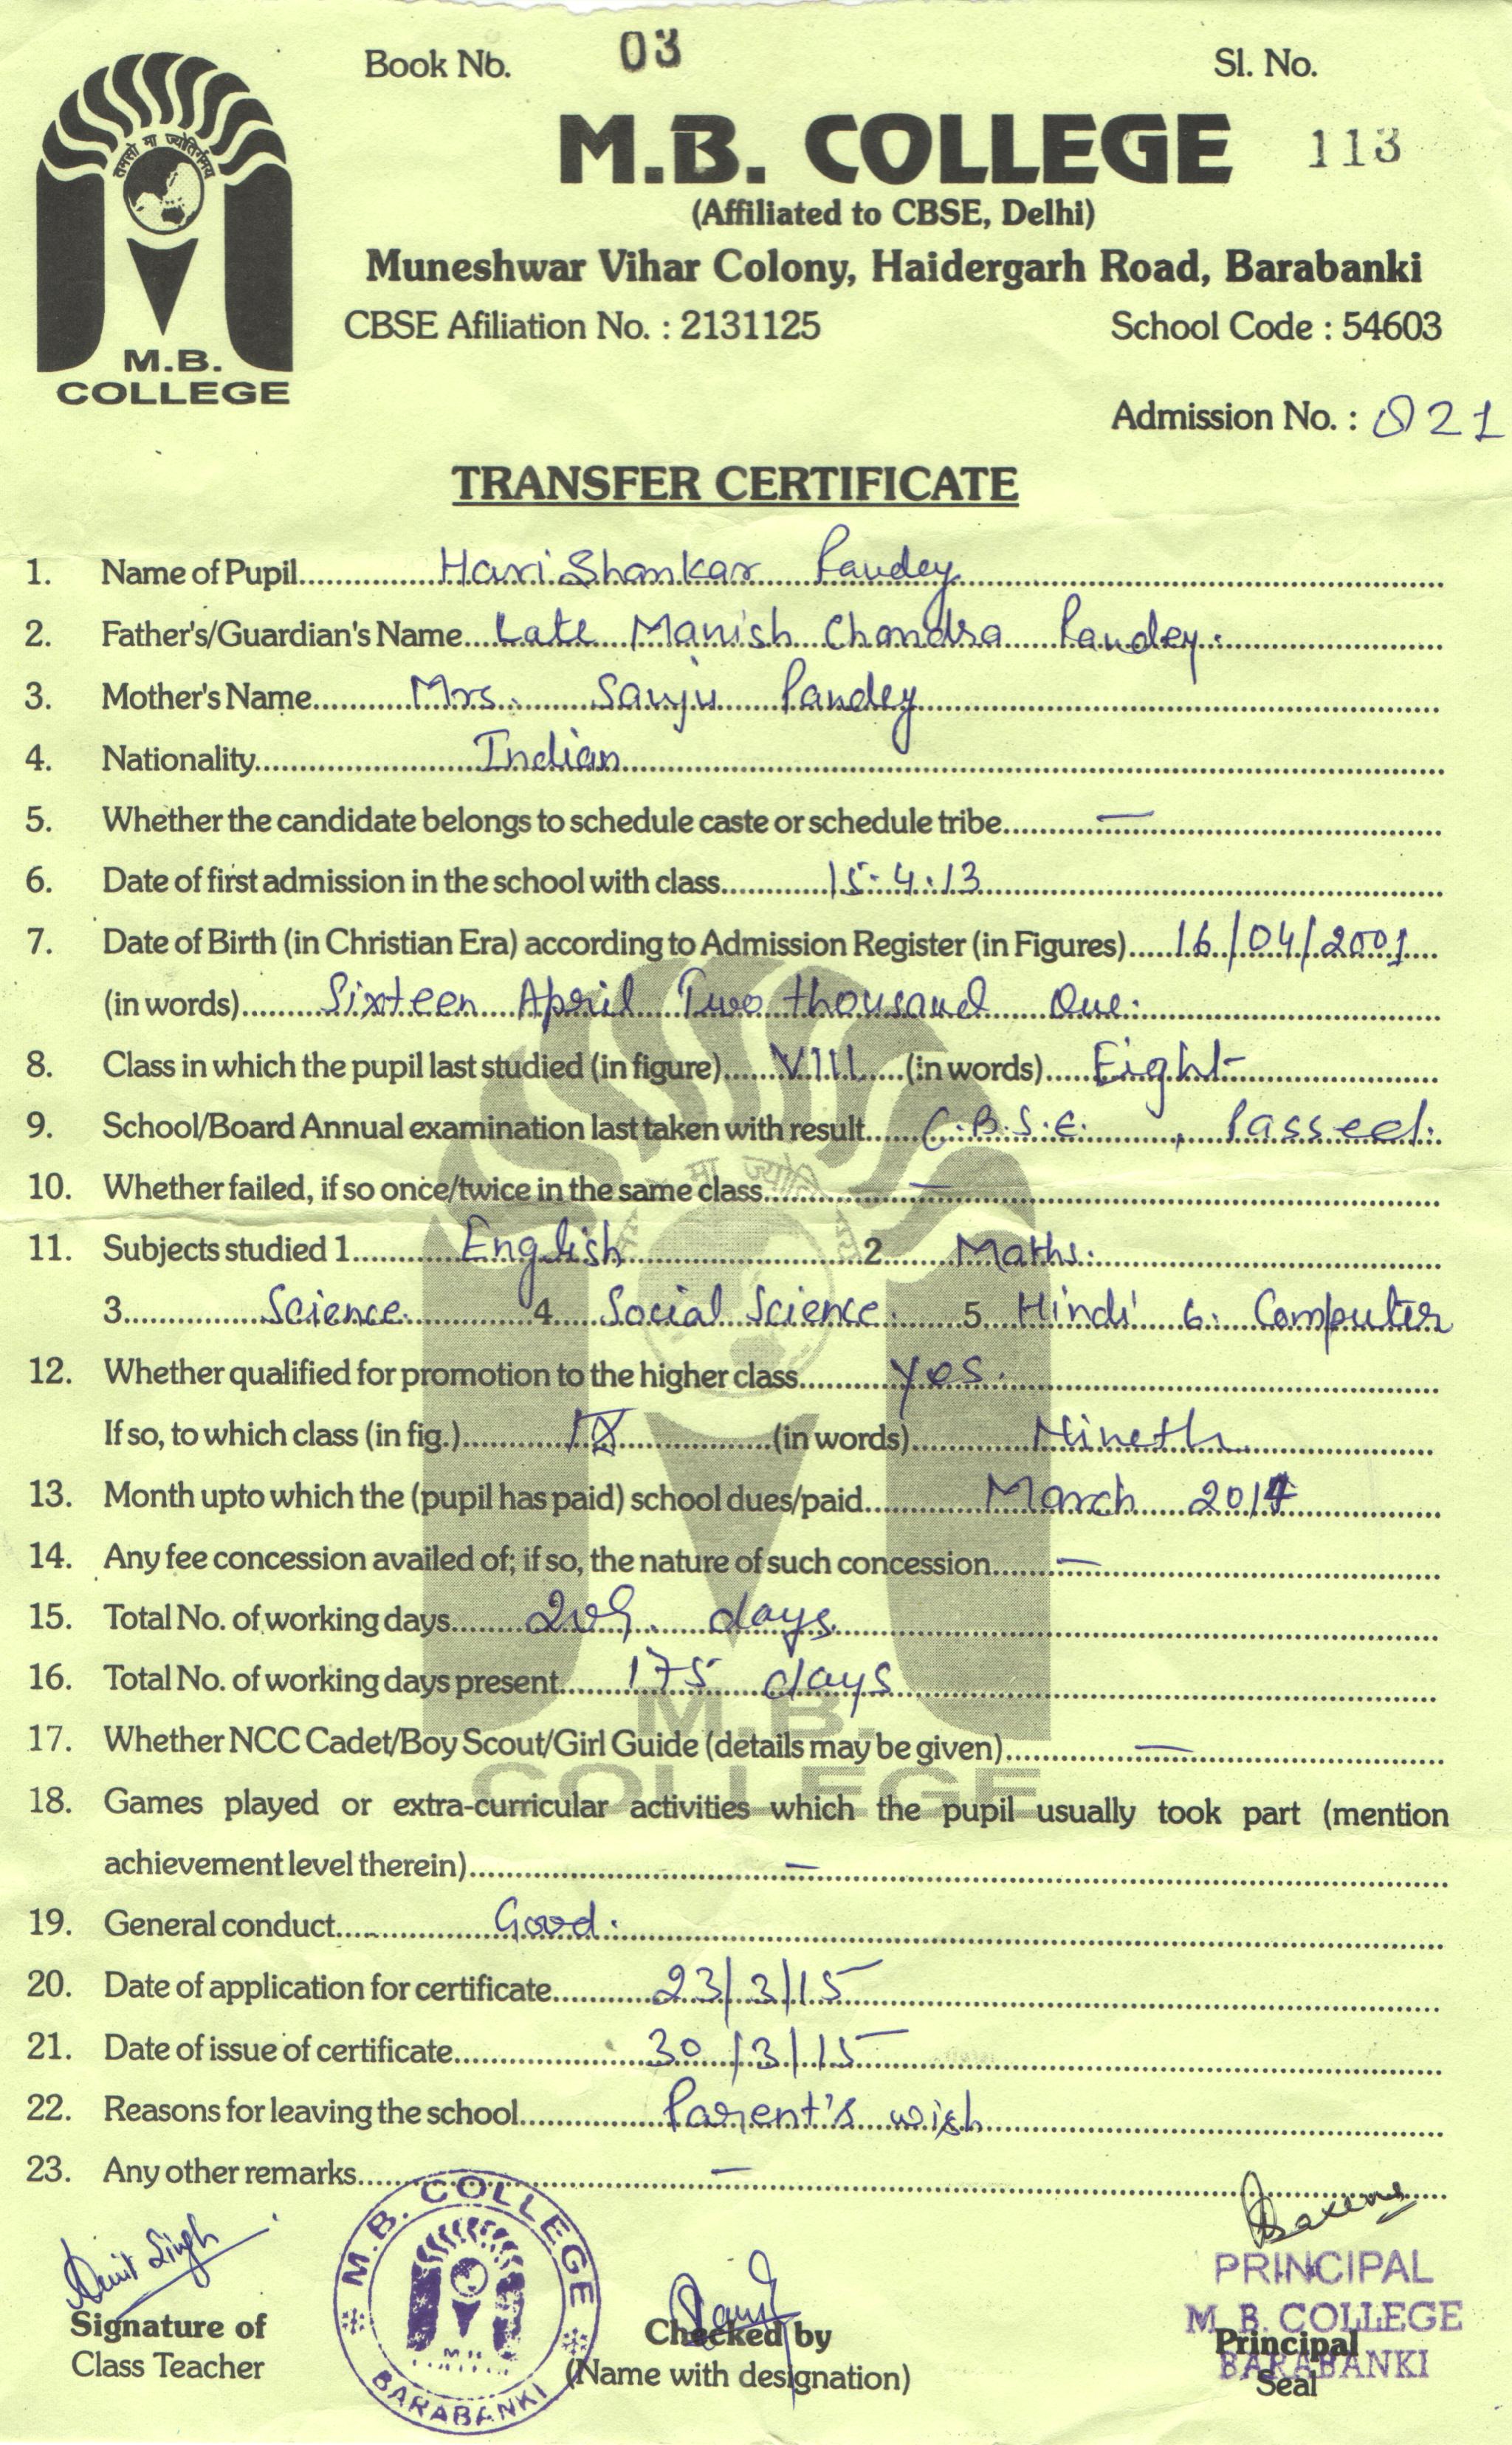 Book No. 03 Sl. No.
M.B. COLLEGE 113
(Affiliated to CBSE, Delhi)
Muneshwar Vihar Colony, Haidergarh Road, Barabanki
CBSE Afiliation No. : 2131125 School Code : 54603
तमसो मा ज्योतिर्गमय
M.B.
COLLEGE
Admission No. : 821
TRANSFER CERTIFICATE
1. Name of Pupil Hari Shankar Pandey
2. Father's/Guardian's Name Late Manish Chandra Pandey.
3. Mother's Name Mrs. Sanju Pandey
4. Nationality Indian
5. Whether the candidate belongs to schedule caste or schedule tribe —
6. Date of first admission in the school with class 15.4.13
7. Date of Birth (in Christian Era) according to Admission Register (in Figures) 16/04/2001
(in words) Sixteen April Two thousand One.
8. Class in which the pupil last studied (in figure) VIII (in words) Eight
9. School/Board Annual examination last taken with result C.B.S.E. , Passed.
10. Whether failed, if so once/twice in the same class —
11. Subjects studied 1 English 2 Maths.
3 Science. 4 Social Science. 5 Hindi 6. Computer
12. Whether qualified for promotion to the higher class yes.
If so, to which class (in fig.) IX (in words) Nineth
13. Month upto which the (pupil has paid) school dues/paid March 2014
14. Any fee concession availed of; if so, the nature of such concession —
15. Total No. of working days 209. days
16. Total No. of working days present 175 days
17. Whether NCC Cadet/Boy Scout/Girl Guide (details may be given) —
18. Games played or extra-curricular activities which the pupil usually took part (mention
achievement level therein) —
19. General conduct Good.
20. Date of application for certificate 23/3/15
21. Date of issue of certificate 30/3/15
22. Reasons for leaving the school Parent's wish
23. Any other remarks —
Amit Singh
Signature of
Class Teacher
M.B. COLLEGE
BARABANKI
Checked by
(Name with designation)
PRINCIPAL
M. B. COLLEGE
BARABANKI
Principal
Seal